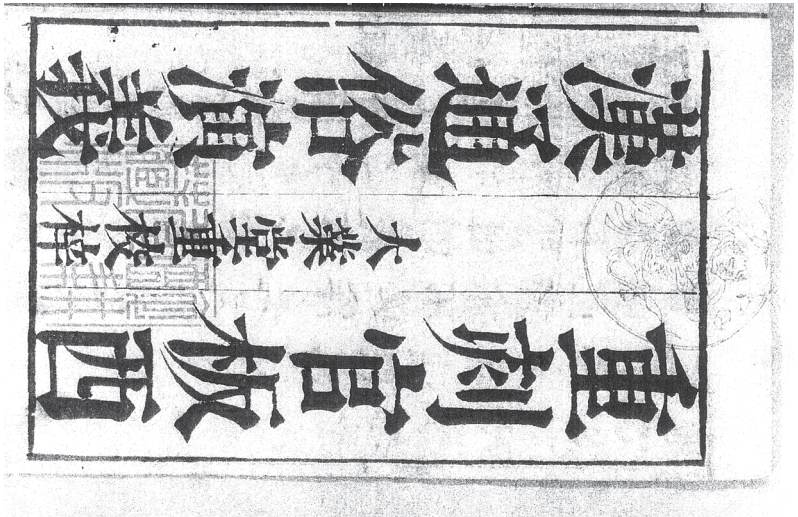 重刻官板西
漢通俗演義
大業堂重校梓